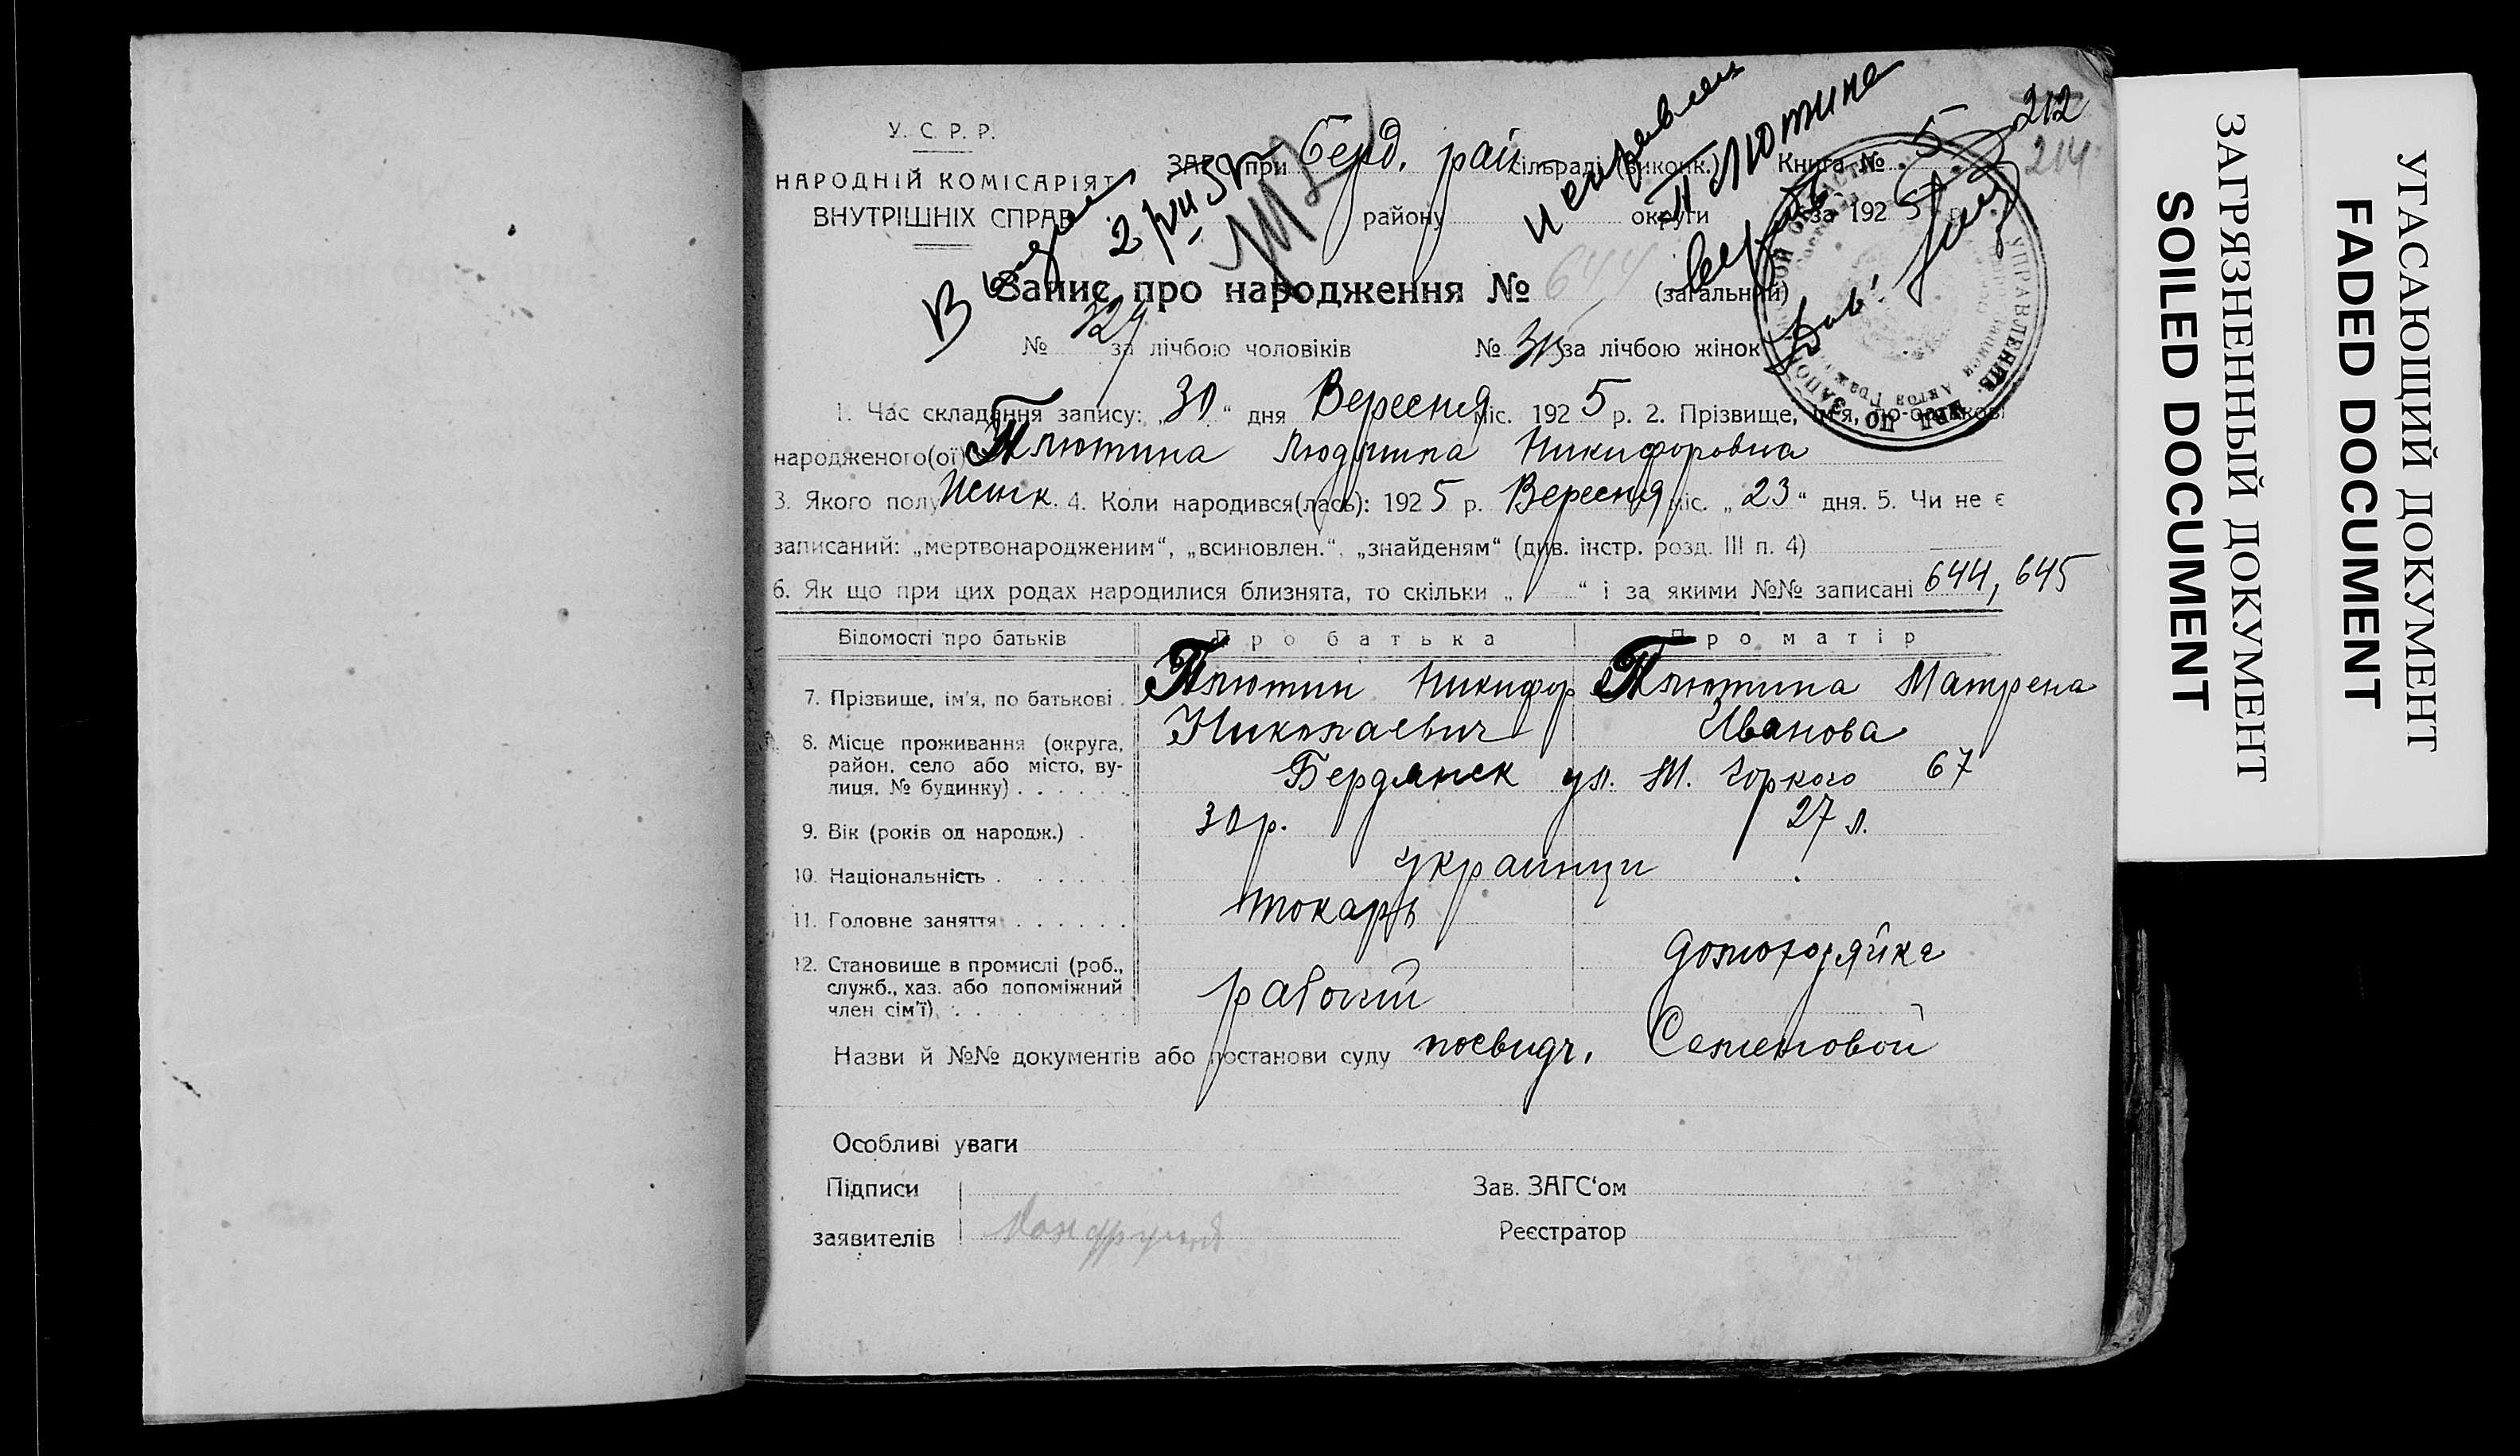 212
214
У. С. Р. Р.
НАРОДНІЙ КОМІСАРІЯТ
ВНУТРІШНІХ СПРАВ
ЗАГС при Берд. рай сільраді (виконк.) Книга № 5
району округи за 1925 р.
исправлен
Плютина
верить
Запис про народження № 644 (загальний)
№ 329 за лічбою чоловіків № 315 за лічбою жінок
1. Час складання запису: „30“ дня Вересня міс. 1925 р. 2. Прізвище, ім'я, по-батькові
народженого(ої) Плютина Людмила Никифоровна
3. Якого полу женск. 4. Коли народився(лась): 1925 р. Вересня міс. „23“ дня. 5. Чи не є
записаний: „мертвонародженим“, „всиновлен.“, „знайденям“ (див. інстр. розд. III п. 4)
6. Як що при цих родах народилися близнята, то скільки „ “ і за якими №№ записані 644, 645
Відомості про батьків Про батька Про матір
7. Прізвище, ім'я, по батькові . Плютин Никифор Плютина Матрена
Николаевич Иванова
8. Місце проживання (округа, район, село або місто, ву-
лиця, № будинку) . . . . . . Бердянск ул. М. Горкого 67
9. Вік (років од народж.) . 30 р. 27 л.
10. Національність . . . . . украинци
11. Головне заняття . . . . . . токарь
домохозяйка
12. Становище в промислі (роб.,
служб., хаз. або допоміжний
член сім'ї) рабочий
Назви й №№ документів або постанови суду посвидч. Семеновой
Особливі уваги
Підписи Зав. ЗАГС'ом
заявителів Реєстратор
ЗАГРЯЗНЕННЫЙ ДОКУМЕНТ
SOILED DOCUMENT
УГАСАЮЩИЙ ДОКУМЕНТ
FADED DOCUMENT